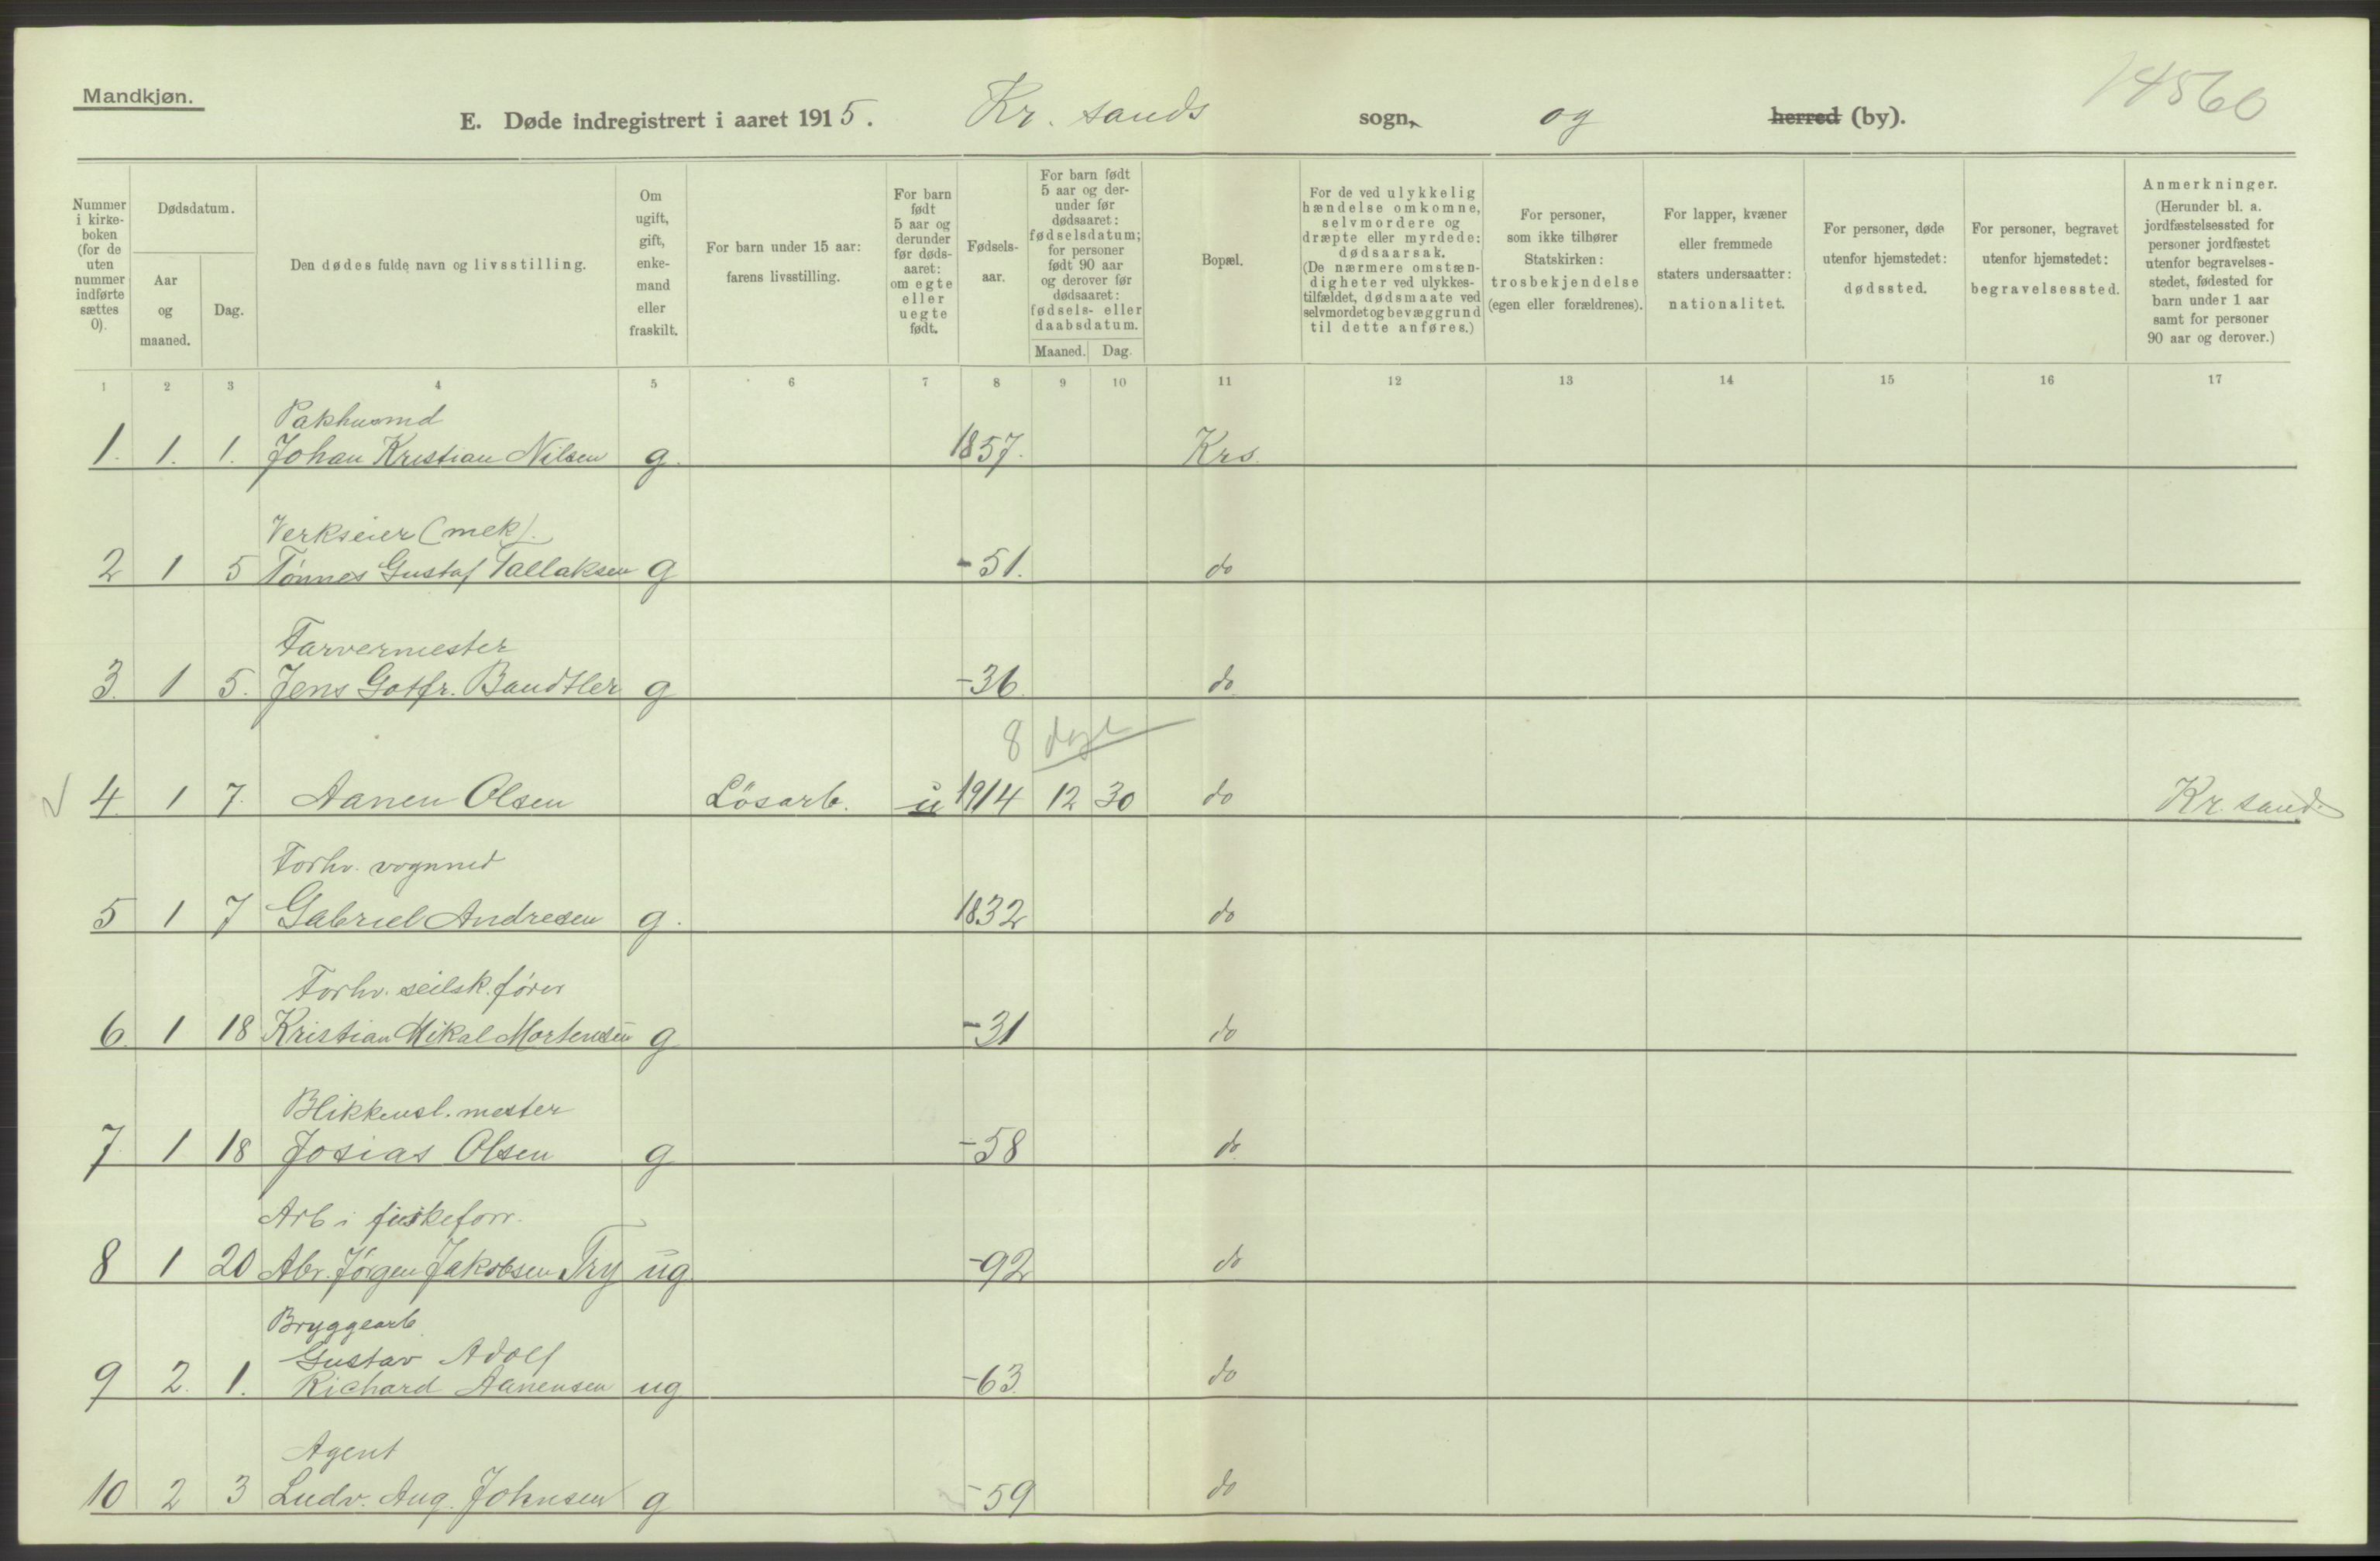 Mandkjøn.
14560
E. Døde indregistrert i aaret 1915. Kr. sands sogn, og herred (by).
Nummer i kirkeboken (for de uten nummer indførte sættes 0).
Dødsdatum.
Aar og maaned.
Dag.
Den dødes fulde navn og livsstilling.
Om ugift, gift, enkemand eller fraskilt.
For barn under 15 aar: farens livsstilling.
For barn født 5 aar og derunder før dødsaaret: om egte eller uegte født.
Fødselsaar.
For barn født 5 aar og derunder før dødsaaret: fødselsdatum; for personer født 90 aar og derover før dødsaaret: fødsels- eller daabsdatum.
Maaned. Dag.
Bopæl.
For de ved ulykkelig hændelse omkomne, selvmordere og dræpte eller myrdede: dødsaarsak. (De nærmere omstændigheter ved ulykkestilfældet, dødsmaate ved selvmordet og bevæggrund til dette anføres.)
For personer, som ikke tilhører Statskirken: trosbekjendelse (egen eller forældrenes).
For lapper, kvæner eller fremmede staters undersaatter: nationalitet.
For personer, døde utenfor hjemstedet: dødssted.
For personer, begravet utenfor hjemstedet: begravelsessted.
Anmerkninger. (Herunder bl. a. jordfæstelsessted for personer jordfæstet utenfor begravelsesstedet, fødested for barn under 1 aar samt for personer 90 aar og derover.)
1 2 3 4 5 6 7 8 9 10 11 12 13 14 15 16 17
Pakhusmd
1. 1. 1. Johan Kristian Nilsen g. 1857. Krs.
Verkseier (mek).
2 1 5 Tönnes Gustaf Tallaksen g -51. do
Farvermester
3. 1 5. Jens Gotfr. Bandtler g -36. do
8 dage
√ 4. 1 7. Aanen Olsen Lösarb. u 1914 12 30 do Kr. sand.
Forhv. vognmd
5 1 7 Gabriel Andresen g. 1832 do
Forhv. seilsk. fører
6. 1 18 Kristian Mikal Mortensen g -31 do
Blikkensl. mester
7 1 18 Josias Olsen g -58 do
Arb i fiskeforr.
8 1 20 Abr. Jörgen Jakobsen Try ug -92 do
Bryggearb.
Gustav Adolf
9 2. 1. Richard Aanensen ug -63. do
Agent
10 2 3 Ludv. Aug. Johnsen g -59 do